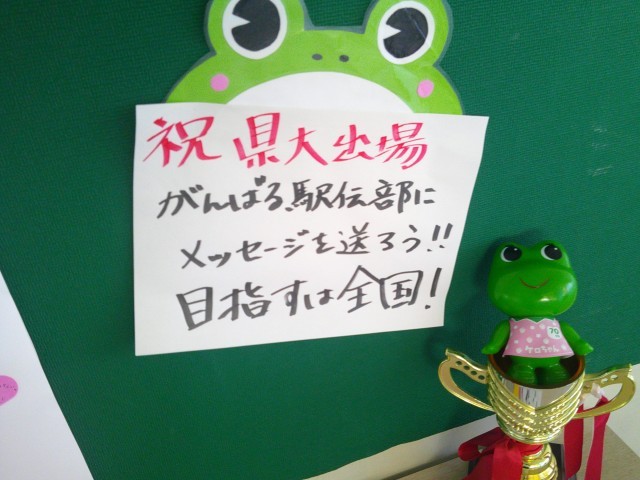 祝 県大出場
がんばる駅伝部に
メッセージを送ろう!!
目指すは全国!
70
ケロちゃん